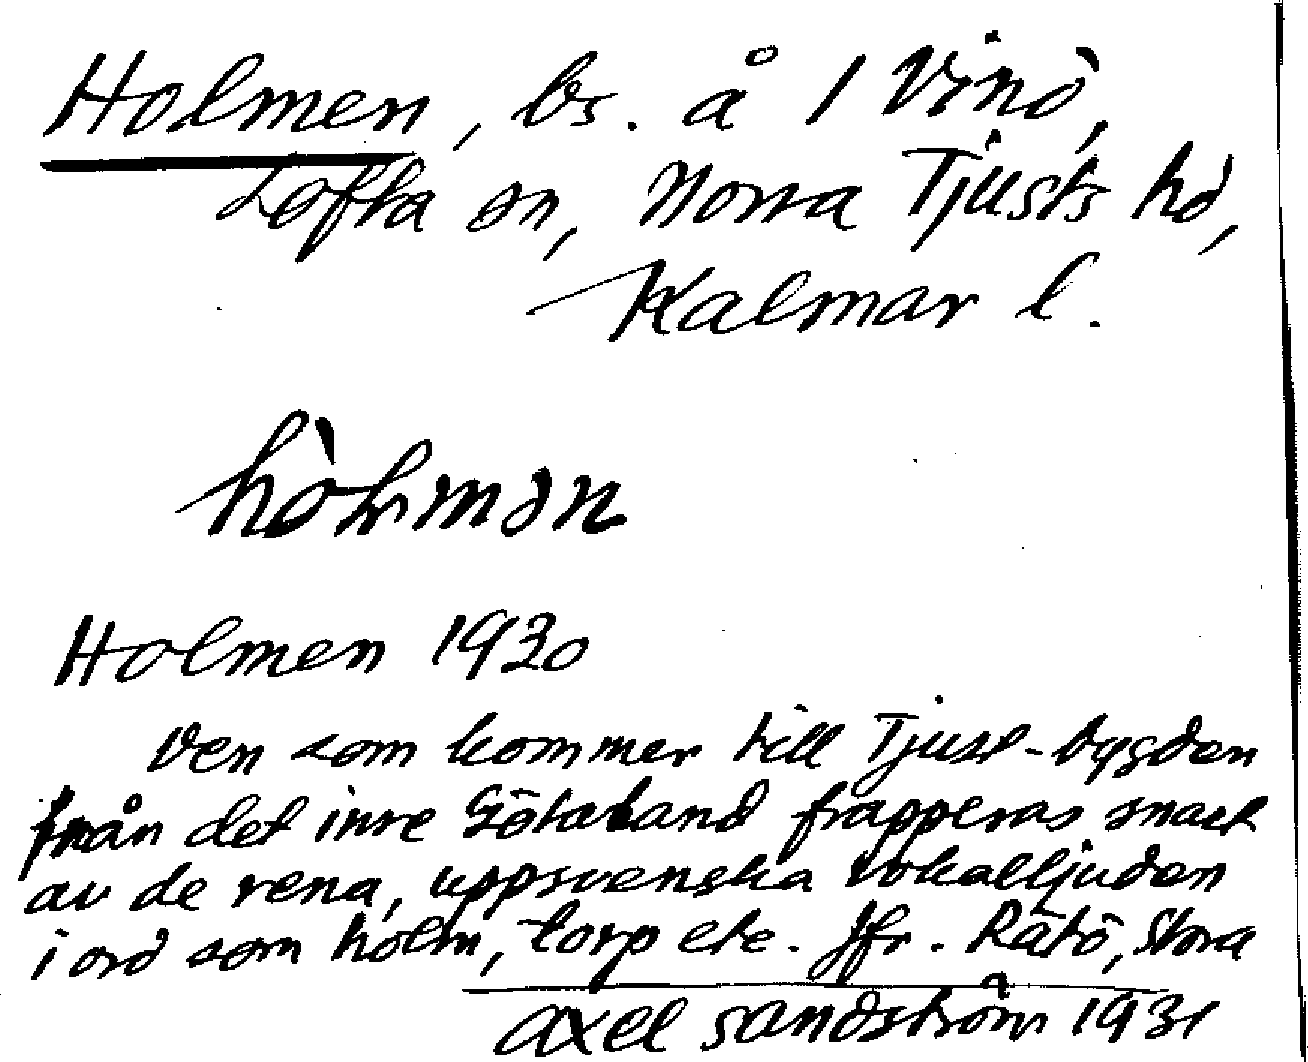 Holmen, bs. å 1 Vinö,
Lofta sn, Norra Tjusts hd,
Kalmar l.
hòlmən
Holmen 1930
Den som kommer till Tjust-bygden
från det inre Götaland frapperas snart
av de rena, uppsvenska vokalljuden
i ord som holm, torp etc. Jfr. Rätö, Stora
Axel Sandström 1931